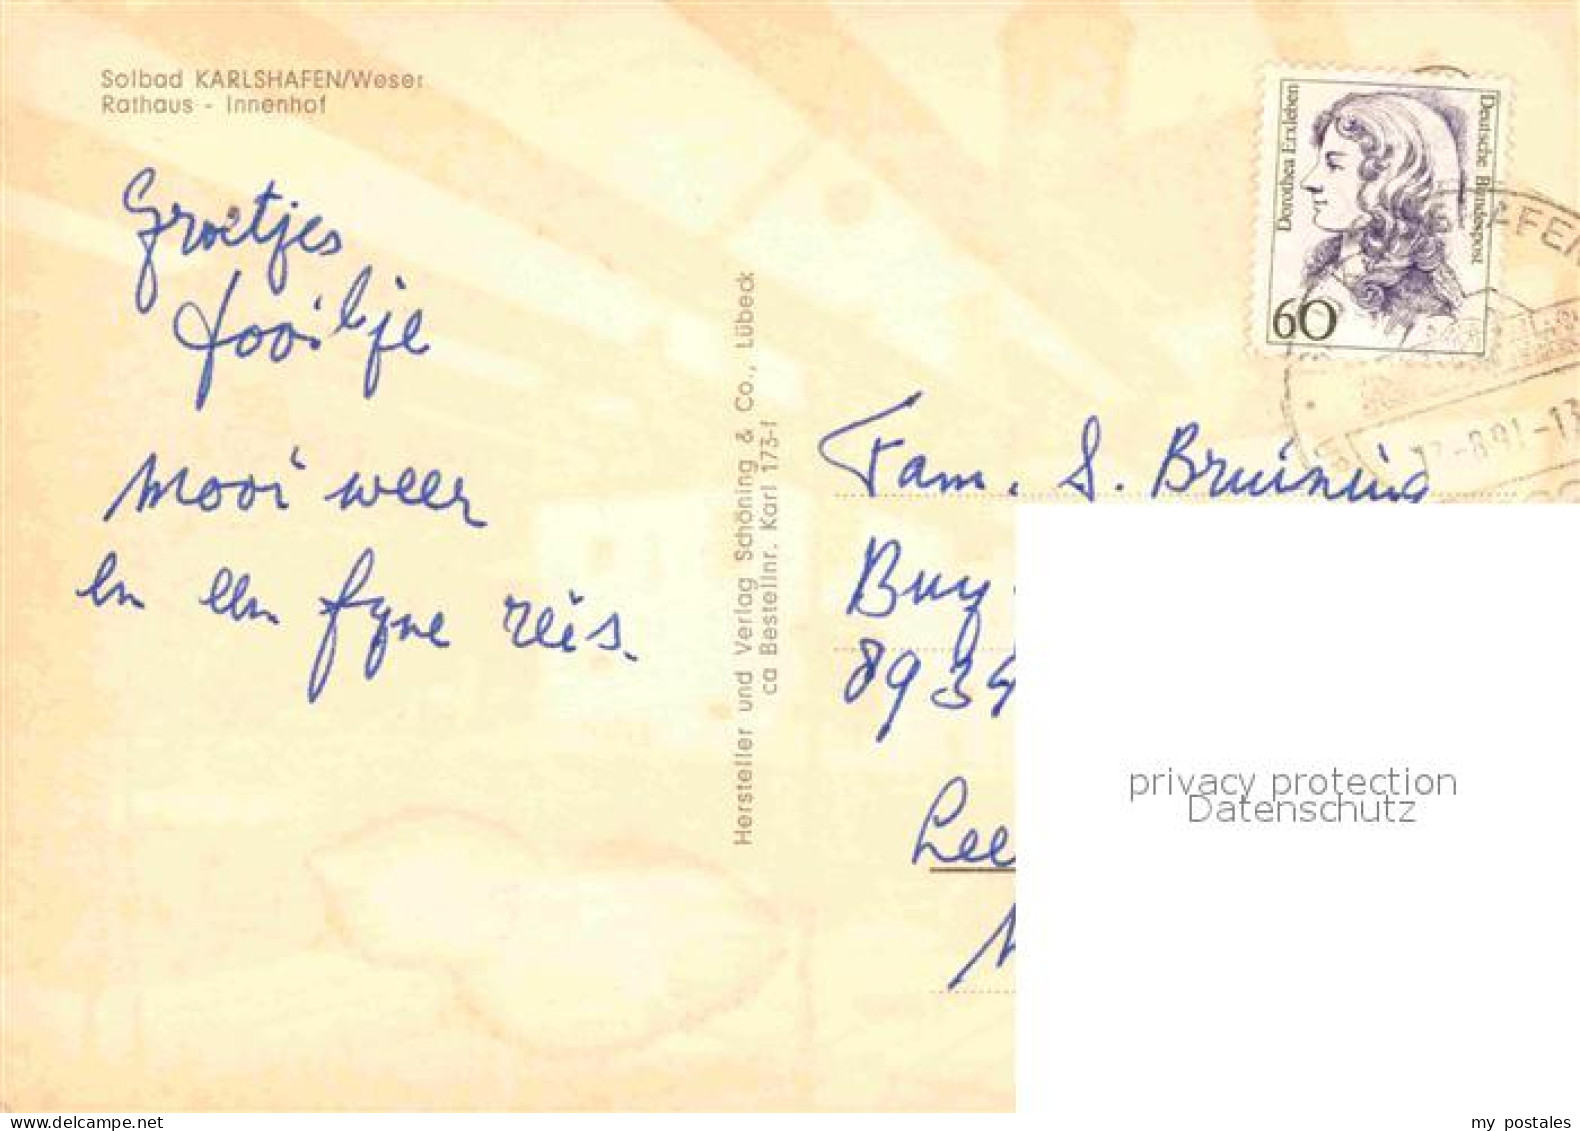 Solbad KARLSHAFEN/Weser
Rathaus - Innenhof
Groetjes
mooi weer
en een fyne reis.
Hersteller und Verlag Schöning & Co., Lübeck
ca Bestellnr. Karl 173-f
Dorothea Erxleben
Deutsche Bundespost
60
AFEN
-8.91-13
Fam. S. Bruinina
Buy
8934
Lee
privacy protection
Datenschutz
my postales